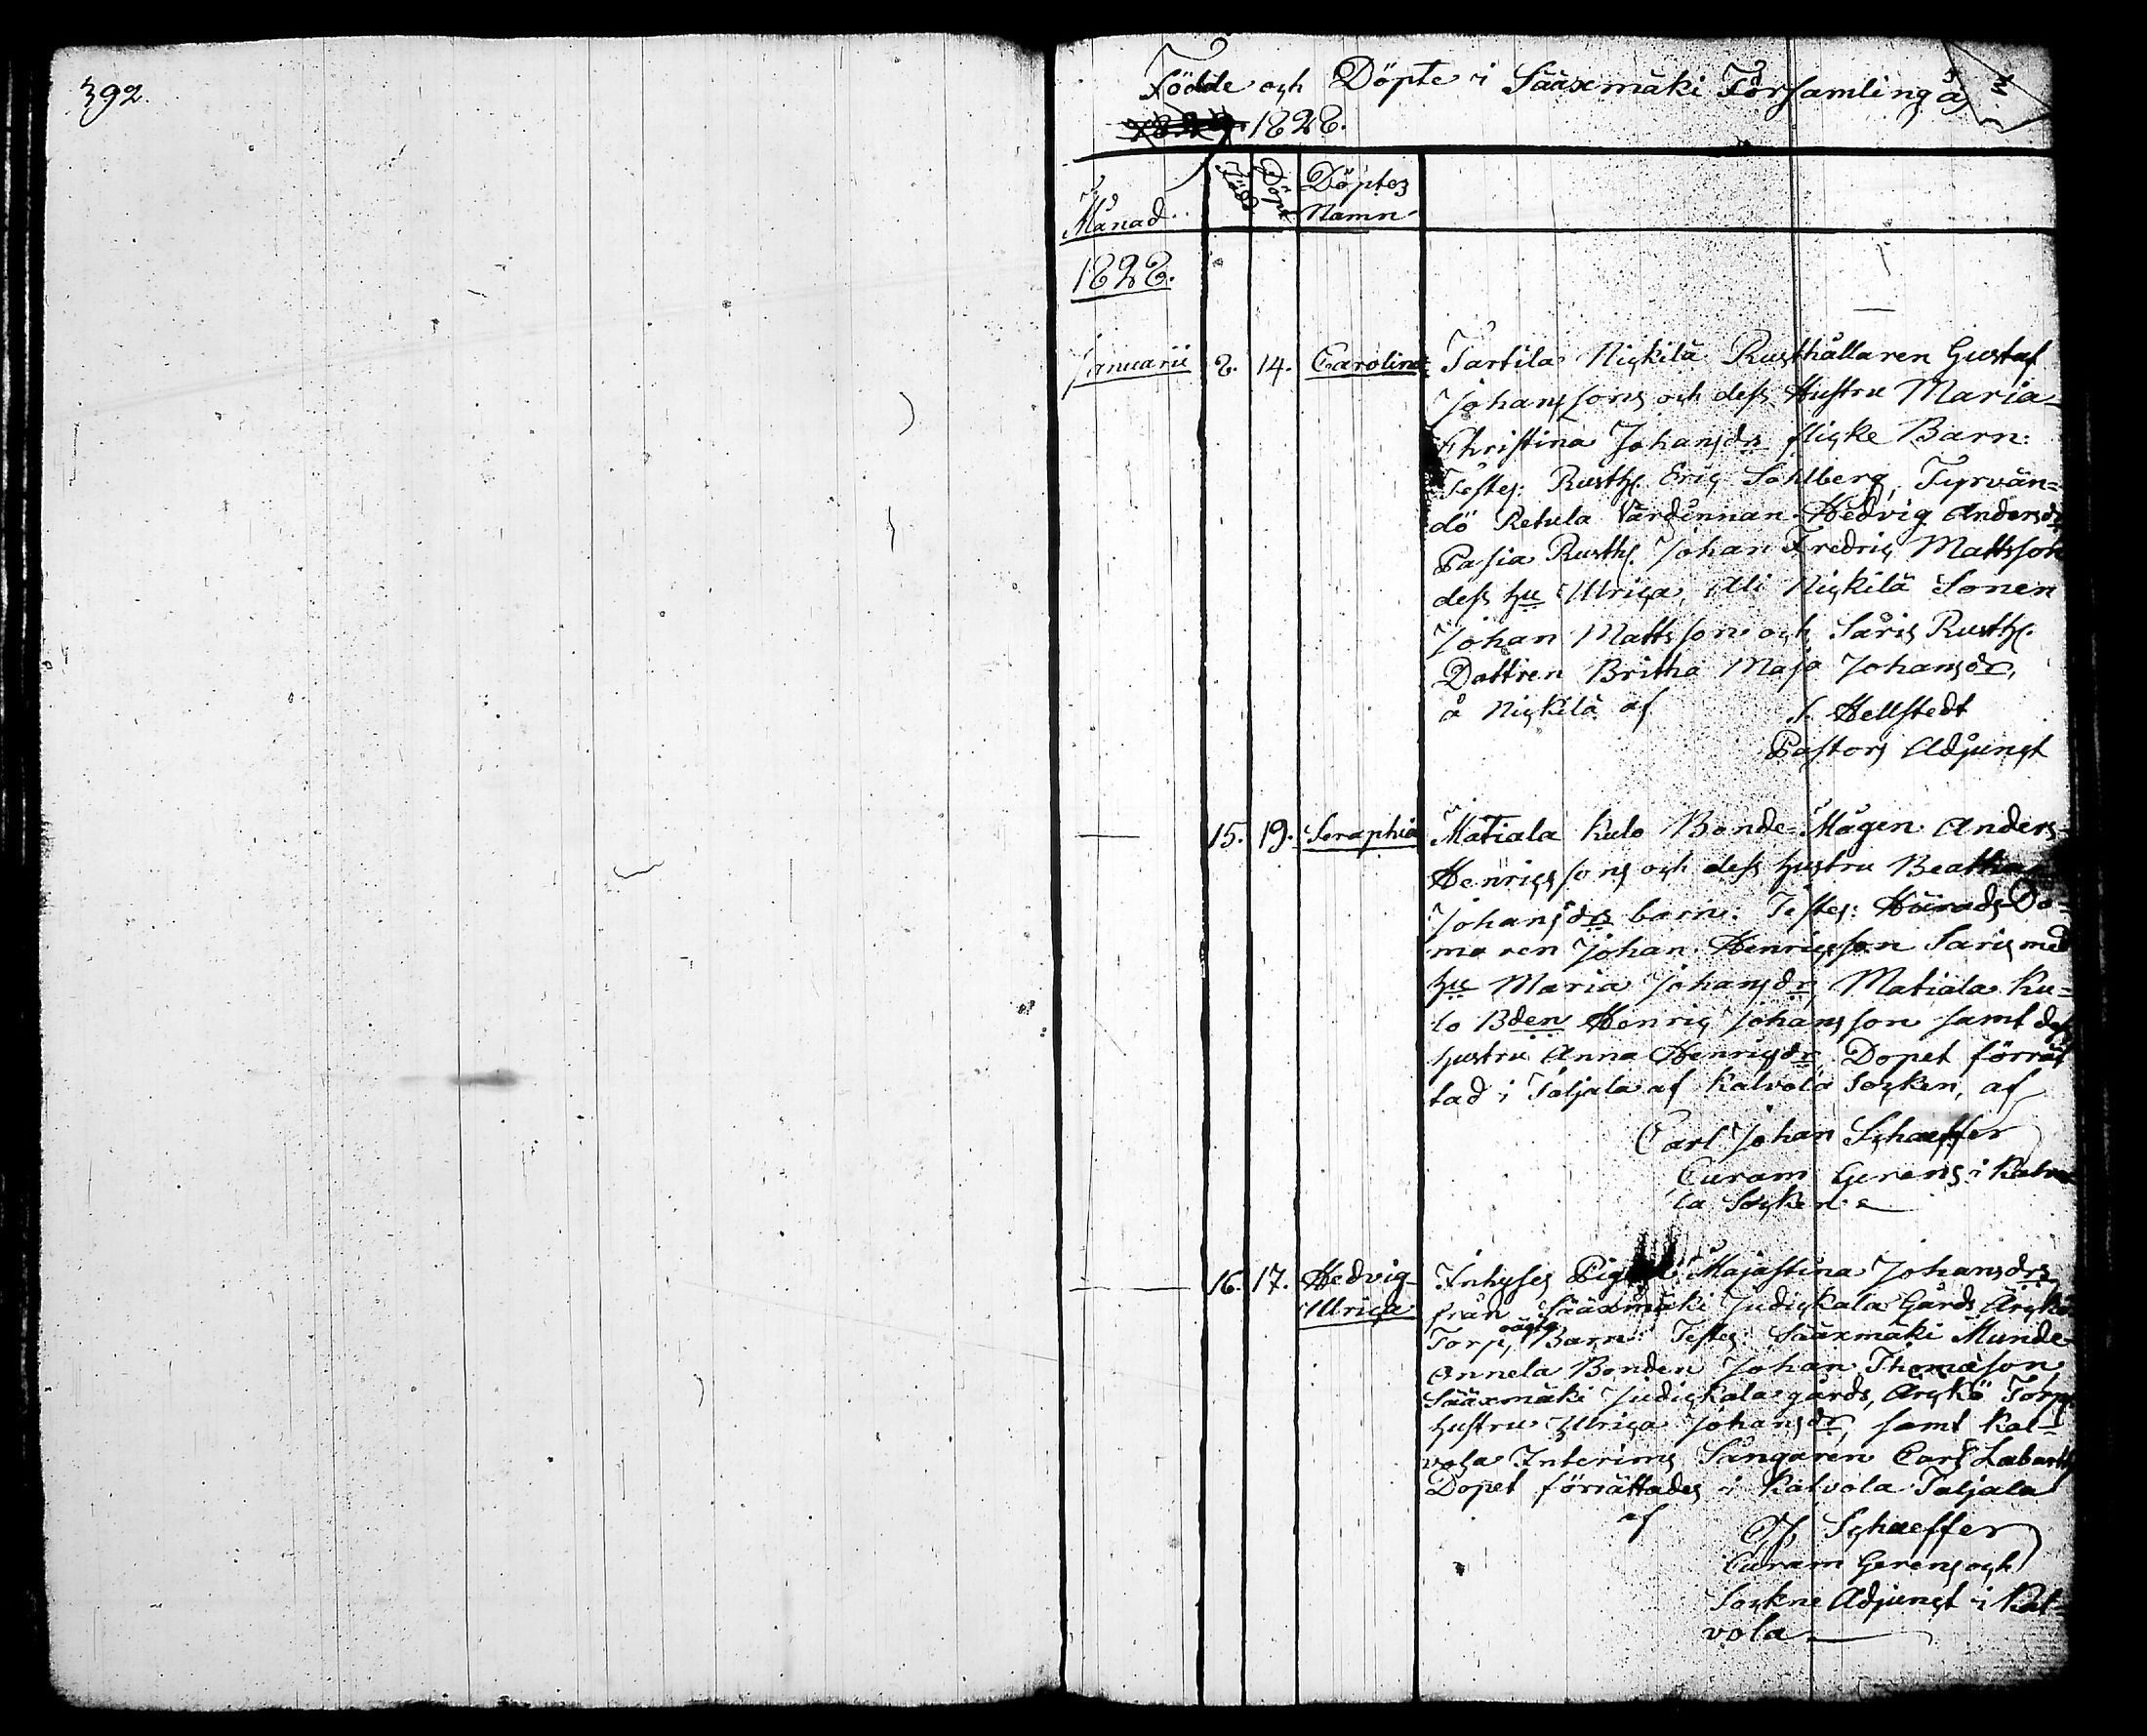 392.
Födde och Döpte i Sääxmäki Församling år
1828.
Månad
Född
Döpt
Döptes
Namn
1828.
Januarii 8. 14. Carolina Tartila Nickilä Rusthållaren Gustaf
Johanssons och dess Hustru Maria
Christina Johansdrs flicke Barn:
Testes: Rusth. Eric Sohlberg, Tyrvän=
dö Retula Värdinnan Hedvig Andersdr
Pasia Rusth. Johan Fredric Mattsson
dess hu Ulrica, Uli Nickilä Sonen
Johan Mattsson och Saris Rusth.
Dottren Britha Maja Johansdr,
å Nickilä af
S. Hellstedt
Pastors Adjunct
15. 19. Seraphia Matiala Kulo Bonde Mågen Anders
Henricssons och dess hustru Beatha
Johansdrs barn: Testes: Härads Do=
maren Johan Henricsson Saris med
hu Maria Johansdr, Matiala Ku=
lo Bden Henric Johansson samt dess
hustru Anna Henricsdr Dopet förrät
tad i Taljala af Kalvola Socken, af
Carl Johan Schaeffer
Curam Gerens i Kalvo
la Socken
16. 17. Hedvig Inhyses Majastina Johansdrs
Ulrica från Sääxmäki Judickala Gårds
oägta
Torp, Barn: Testes: Sääxmäki Munde
Annela Bonden Johan Thomasson
Sääxmäki Judickala gårds, Torp
hustru Ulrica Johansdr, samt Kal=
vola Interims Sångaren Carl
Dopet förrättades i Kalvola Taljala
af
CJ Schaeffer
Curam Gerens och
Sockne Adjunct i Kal=
vola